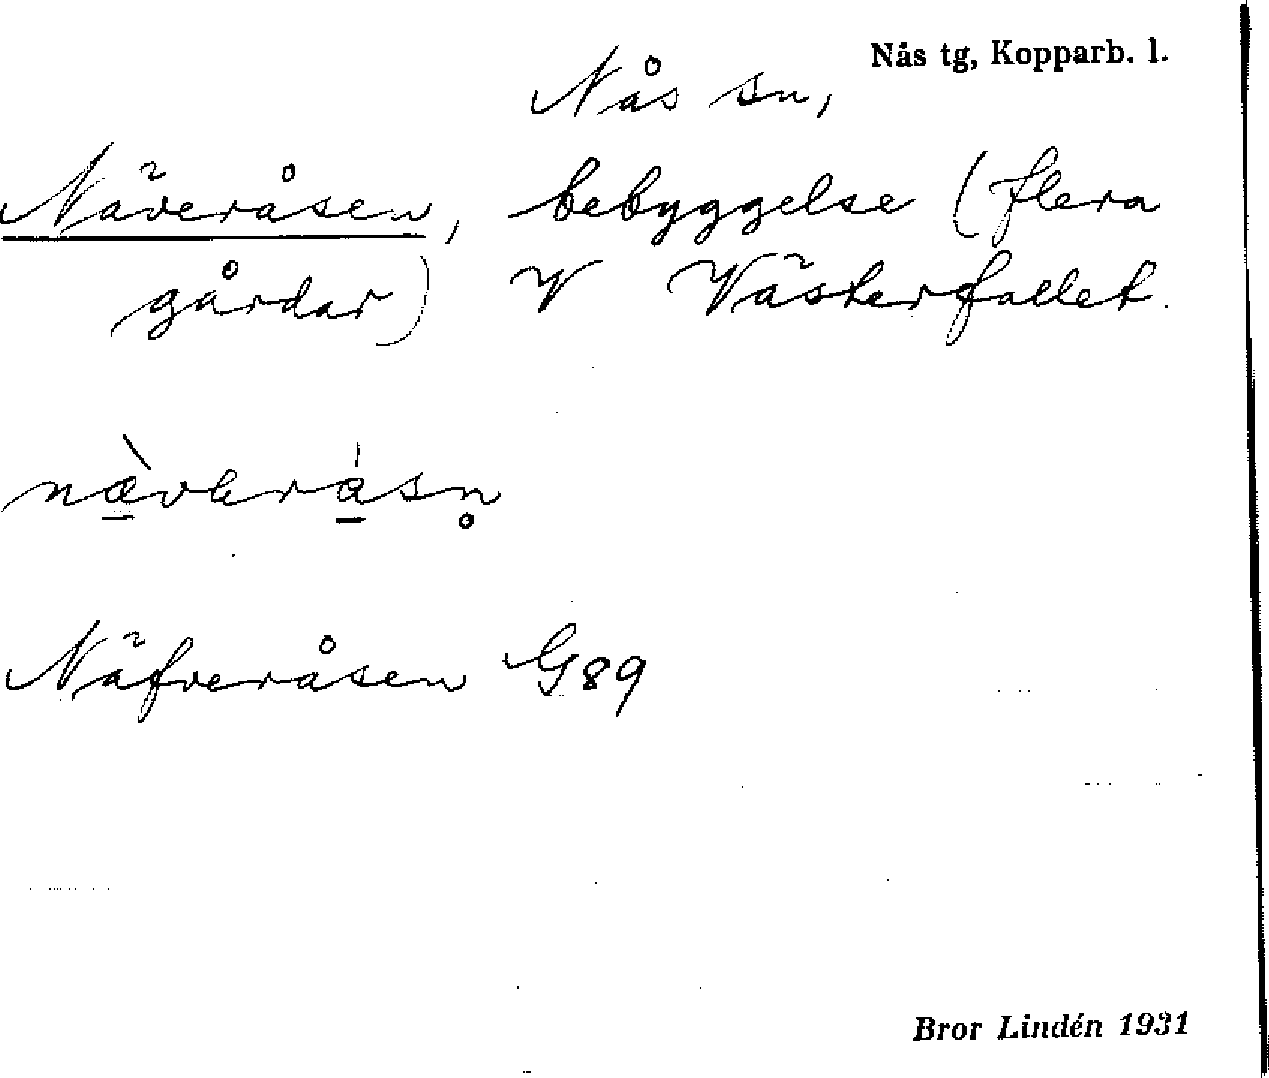 Nås tg, Kopparb. l.
Nås sn,
Näveråsen, bebyggelse (flera
gårdar) V Västerfallet.
Näfveråsen G89
Bror Lindén 1931